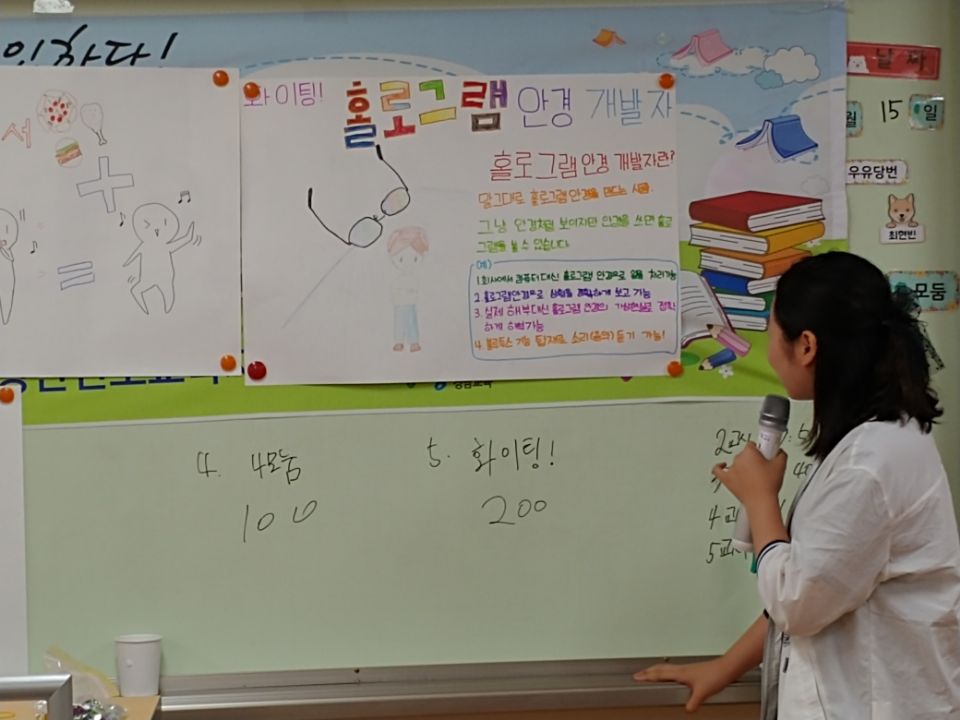 인하다!
날짜
화이팅! 홀로그램 안경 개발자
월 15 일
서
홀로그램 안경 개발자란?
말그대로 홀로그램 안경을 만드는 사람.
우유당번
그냥 안경처럼 보이지만 안경을 쓰면 홀로
그램을 볼 수 있습니다.
최현빈
(예)
1. 회사에서 컴퓨터 대신 홀로그램 안경으로 일을 처리가능
2. 홀로그램안경으로 상황을 정확하게 보고 가능
3. 실제 해부대신 홀로그램 안경의 가상현실로 정확
하게 해부가능
4. 블루투스 기능 탑재로 소리(음악) 듣기 가능!
모둠
4. 4모둠
100
5. 화이팅!
200
2교시
4교
5교시